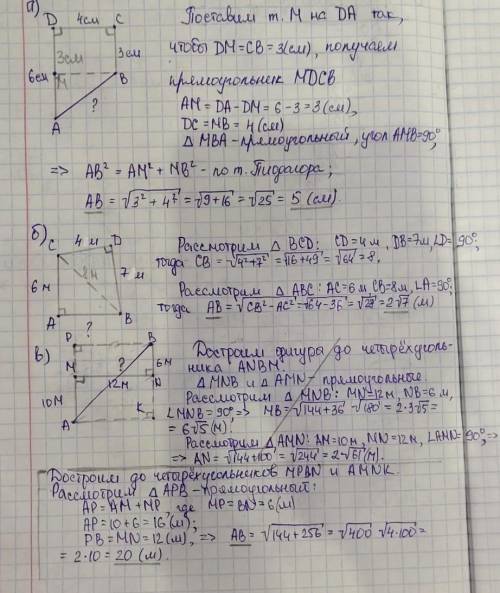 а)
D 4см C
3см 3см
6см M B
?
A
Поставим т. M на DA так,
чтобы DM=CB=3(см), получаем
прямоугольник MDCB
AM=DA-DM=6-3=3(см),
DC=MB=4(см)
Δ MBA-прямоугольный, угол AMB=90°,
=> AB²=AM²+MB²-по т. Пифагора;
AB=√3²+4²=√9+16=√25=5(см).
б)
C 4 м D
6 м 7 м
A ? B
Рассмотрим Δ BCD: CD=4м, DB=7м, ∠D=90°,
тогда CB=√4²+7²=√16+49=√64=8,
Рассмотрим Δ ABC: AC=6м, CB=8м, ∠A=90°;
тогда AB=√CB²-AC²=√64-36=√28=2√7(м)
в)
P B
M ? 6м
12м N
10м
A K
Достроим фигуры до четырёхуголь-
ника ANBM.
Δ MNB и Δ AMN-прямоугольные
Рассмотрим Δ MNB: MN=12м, NB=6м,
∠MNB=90° => MB=√144+36=√180=2·3√5=
=6√5(м)
Рассмотрим Δ AMN: AM=10м, MN=12м, ∠AMN=90°, =>
=> AN=√144+100=√244=2√61(м).
Достроим до четырёхугольников MPBN и AMNK.
Рассмотрим Δ APB-прямоугольный:
AP=AM+MP, где MP=BN=6(м)
AP=10+6=16(м);
PB=MN=12(м), => AB=√144+256=√400=√4·100=
=2·10=20(м).